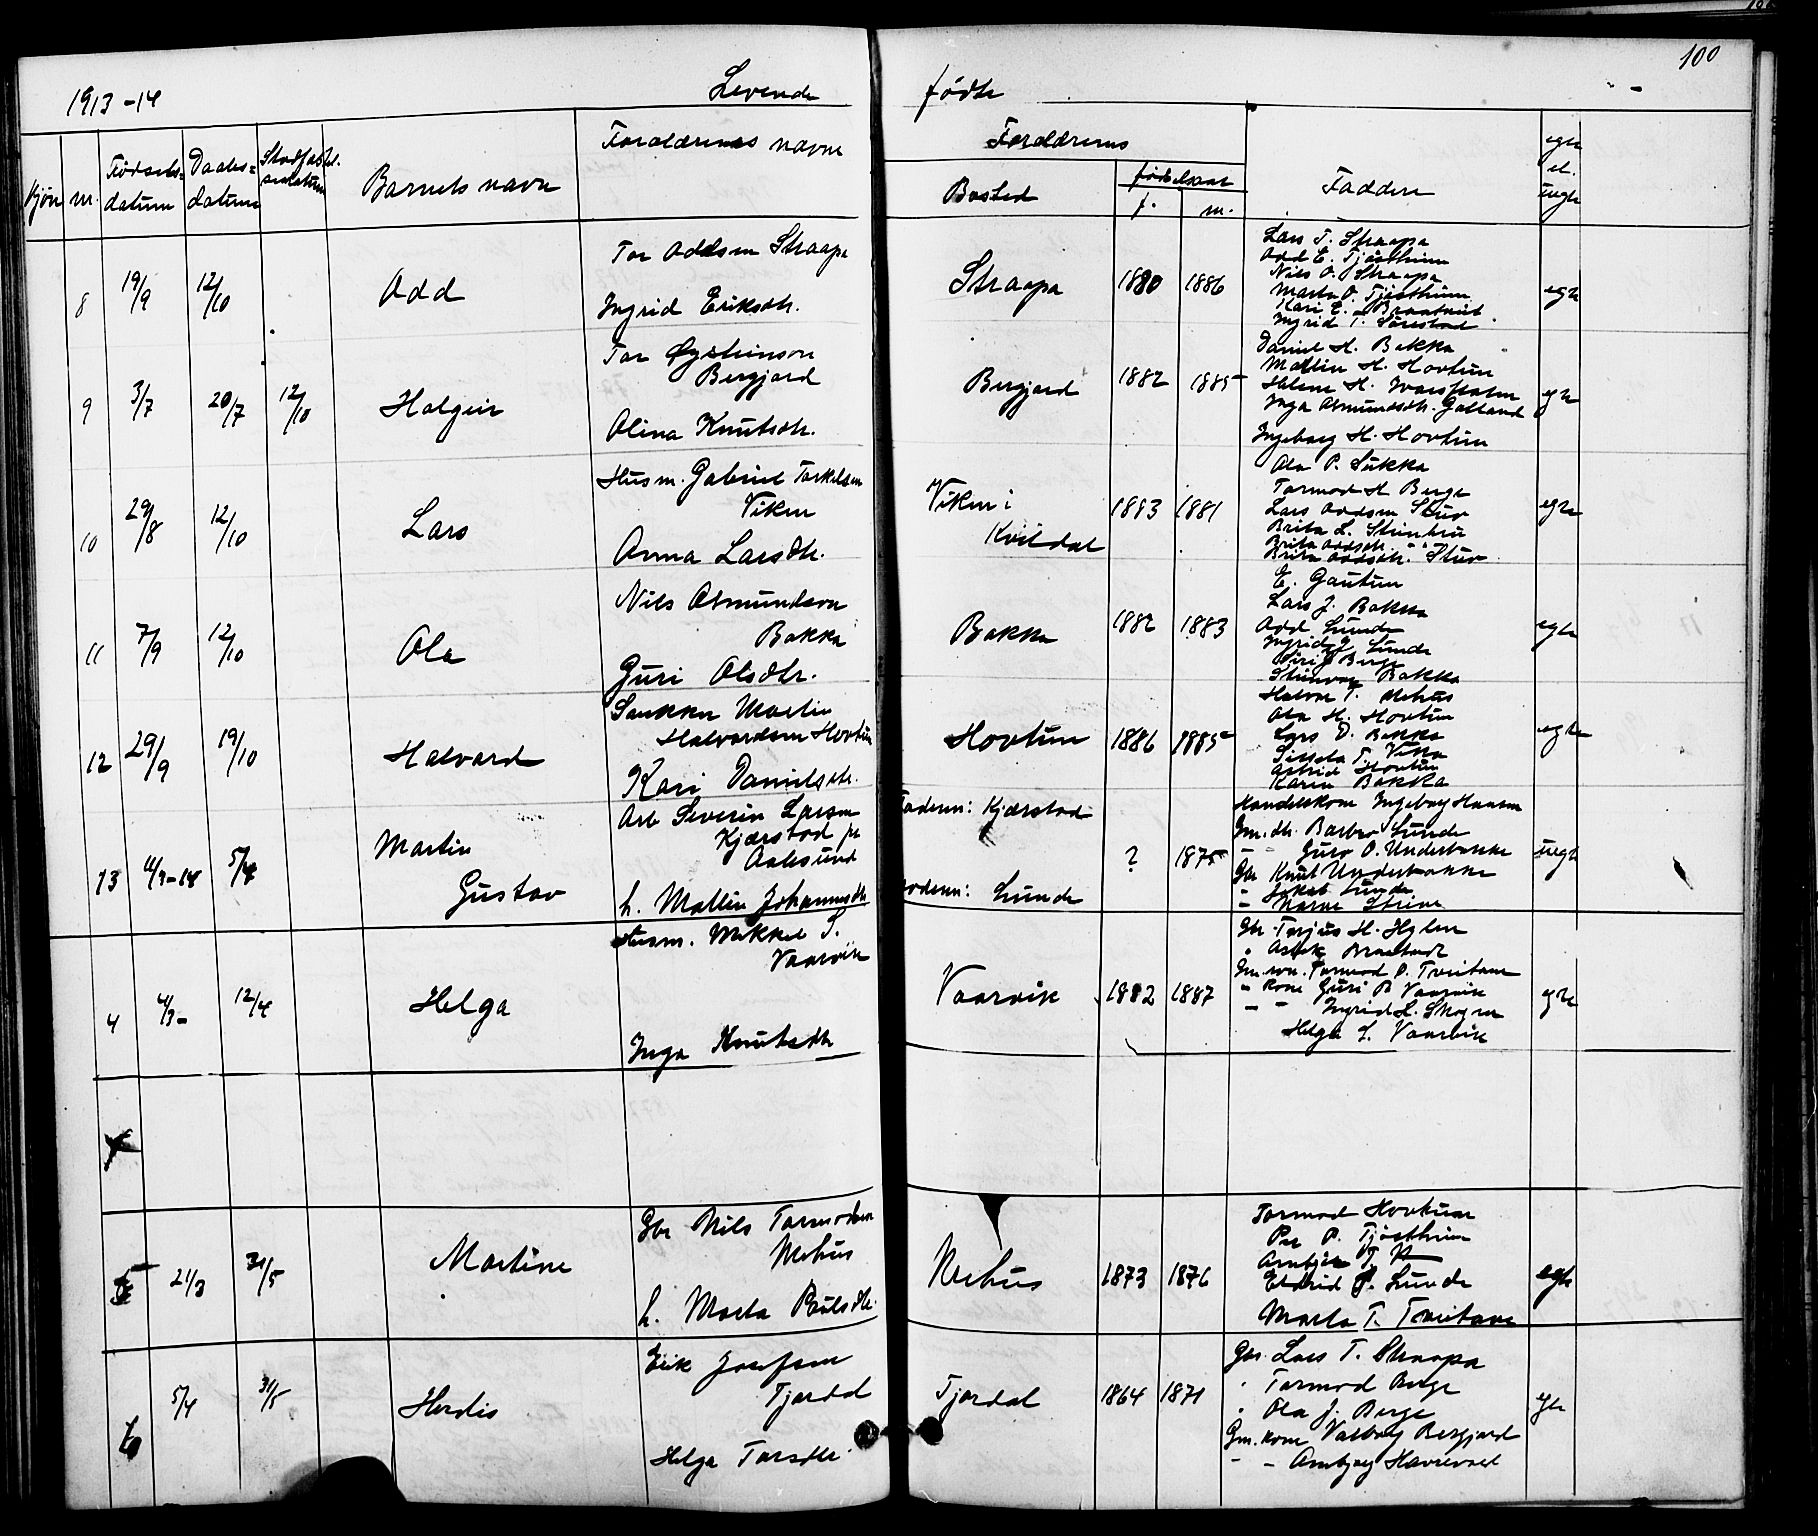 100
1913-14
Levende
fødte
Kjøn
m.
Fødsels-
datum
Daabs-
datum
Stadfæstel-
sesdatum
Barnets navn
Forældrenes navne
Forældrenes
Bosted
fødselsaar
f.
m.
Faddere
egte
el.
uegte
8
19/9
12/10
Odd
Tor Oddsen Straapa
Ingrid Eriksdtr.
Straapa
1880
1886
Lars T. Straapa
Odd E. Tjøstheim
Nils O. Straapa
Marta O. Tjøstheim
Kari E.
Ingrid T.
egte
9
3/7
20/7
12/10
Halgeir
Tor Øysteinson
Bergjord
Olina Knutsdtr.
Bergjord
1882
1885
Daniel H. Bakka
Mallin H. Hovtun
Helene H.
Inga Osmundsdtr. Galland
Ingeborg H. Hovtun
egte
10
29/8
12/10
Lars
Husm. Gabriel Torkelsen
Viken
Anna Larsdtr.
Viken i
Kvildal
1883
1881
Ola P. Sukka
Tormod H Berge
Lars Oddsen Stuv
Brita L.
Brita Oddsdtr. "
Brita Oddsdtr. Stuv
egte
11
7/9
12/10
Ola
Nils Osmundson
Bakka
Guri Olsdtr.
Bakka
1882
1883
E. Gautun
Lars J. Bakka
Odd Lunde
Ingrid Lunde
Siri J Berge
Steinvor Bakka
egte
12
29/9
19/10
Halvard
Snekker Martin
Halvardsen Hovtun
Kari Danielsdtr.
Hovtun
1886
1885
Halvor T. Mehus
Ola H. Hovtun
Lars D. Bakka
Sissela T. Vika
Astrid Hovtun
Karin Bakka
egte
13
4/3-14
5/4
Martin
Gustav
Arb Severin Larsen
Kjærstad pr
Aalesund
h. Mallin Johannesdtr
Faderen: Kjærstad
Moderen: Lunde
?
1875
Handelskone Ingeborg Hansen
Gm. dtr. Barbro Lunde
- Guro O. Underbakke
Gbr Knut Underbakke
" Jakob Lunde
uegte
4
4/3-
12/4
Helga
Husm. Mikkel S.
Vaarvik
Inga Knutsdtr
Vaarvik
1882
1887
Gbr. Terjus H. Hylen
" Aslak
Gm. søn. Tormod O. Tveitane
" kone Guri B Vaarvik
- - Ingrid L.
Helga L. Vaarvik
egte
5
21/3
31/5
Martine
Gbr Nils Tormodsen
Mehus
h. Marta Paulsdtr.
Mehus
1873
1876
Tormod Hovtun
Per P. Tjøstheim
Eldrid J. Lunde
Marta T. Tveitane
egte
6
5/4
31/5
Herdis
Eirik Josefsen
Tjordal
Helga Torsdtr.
Tjordal
1864
1871
Gbr. Lars T. Straapa
" Tormod Berge
" Ola J. Berge
Gm. kone Valborg Bergjord
- - Anbjørg Havrevold
egte